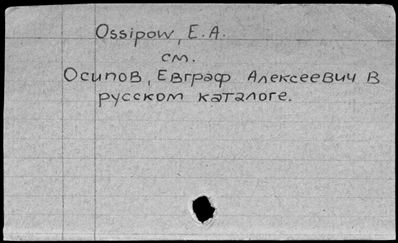 Ossipow, E.A.
см.
Осипов, Евграф Алексеевич в
русском каталоге.